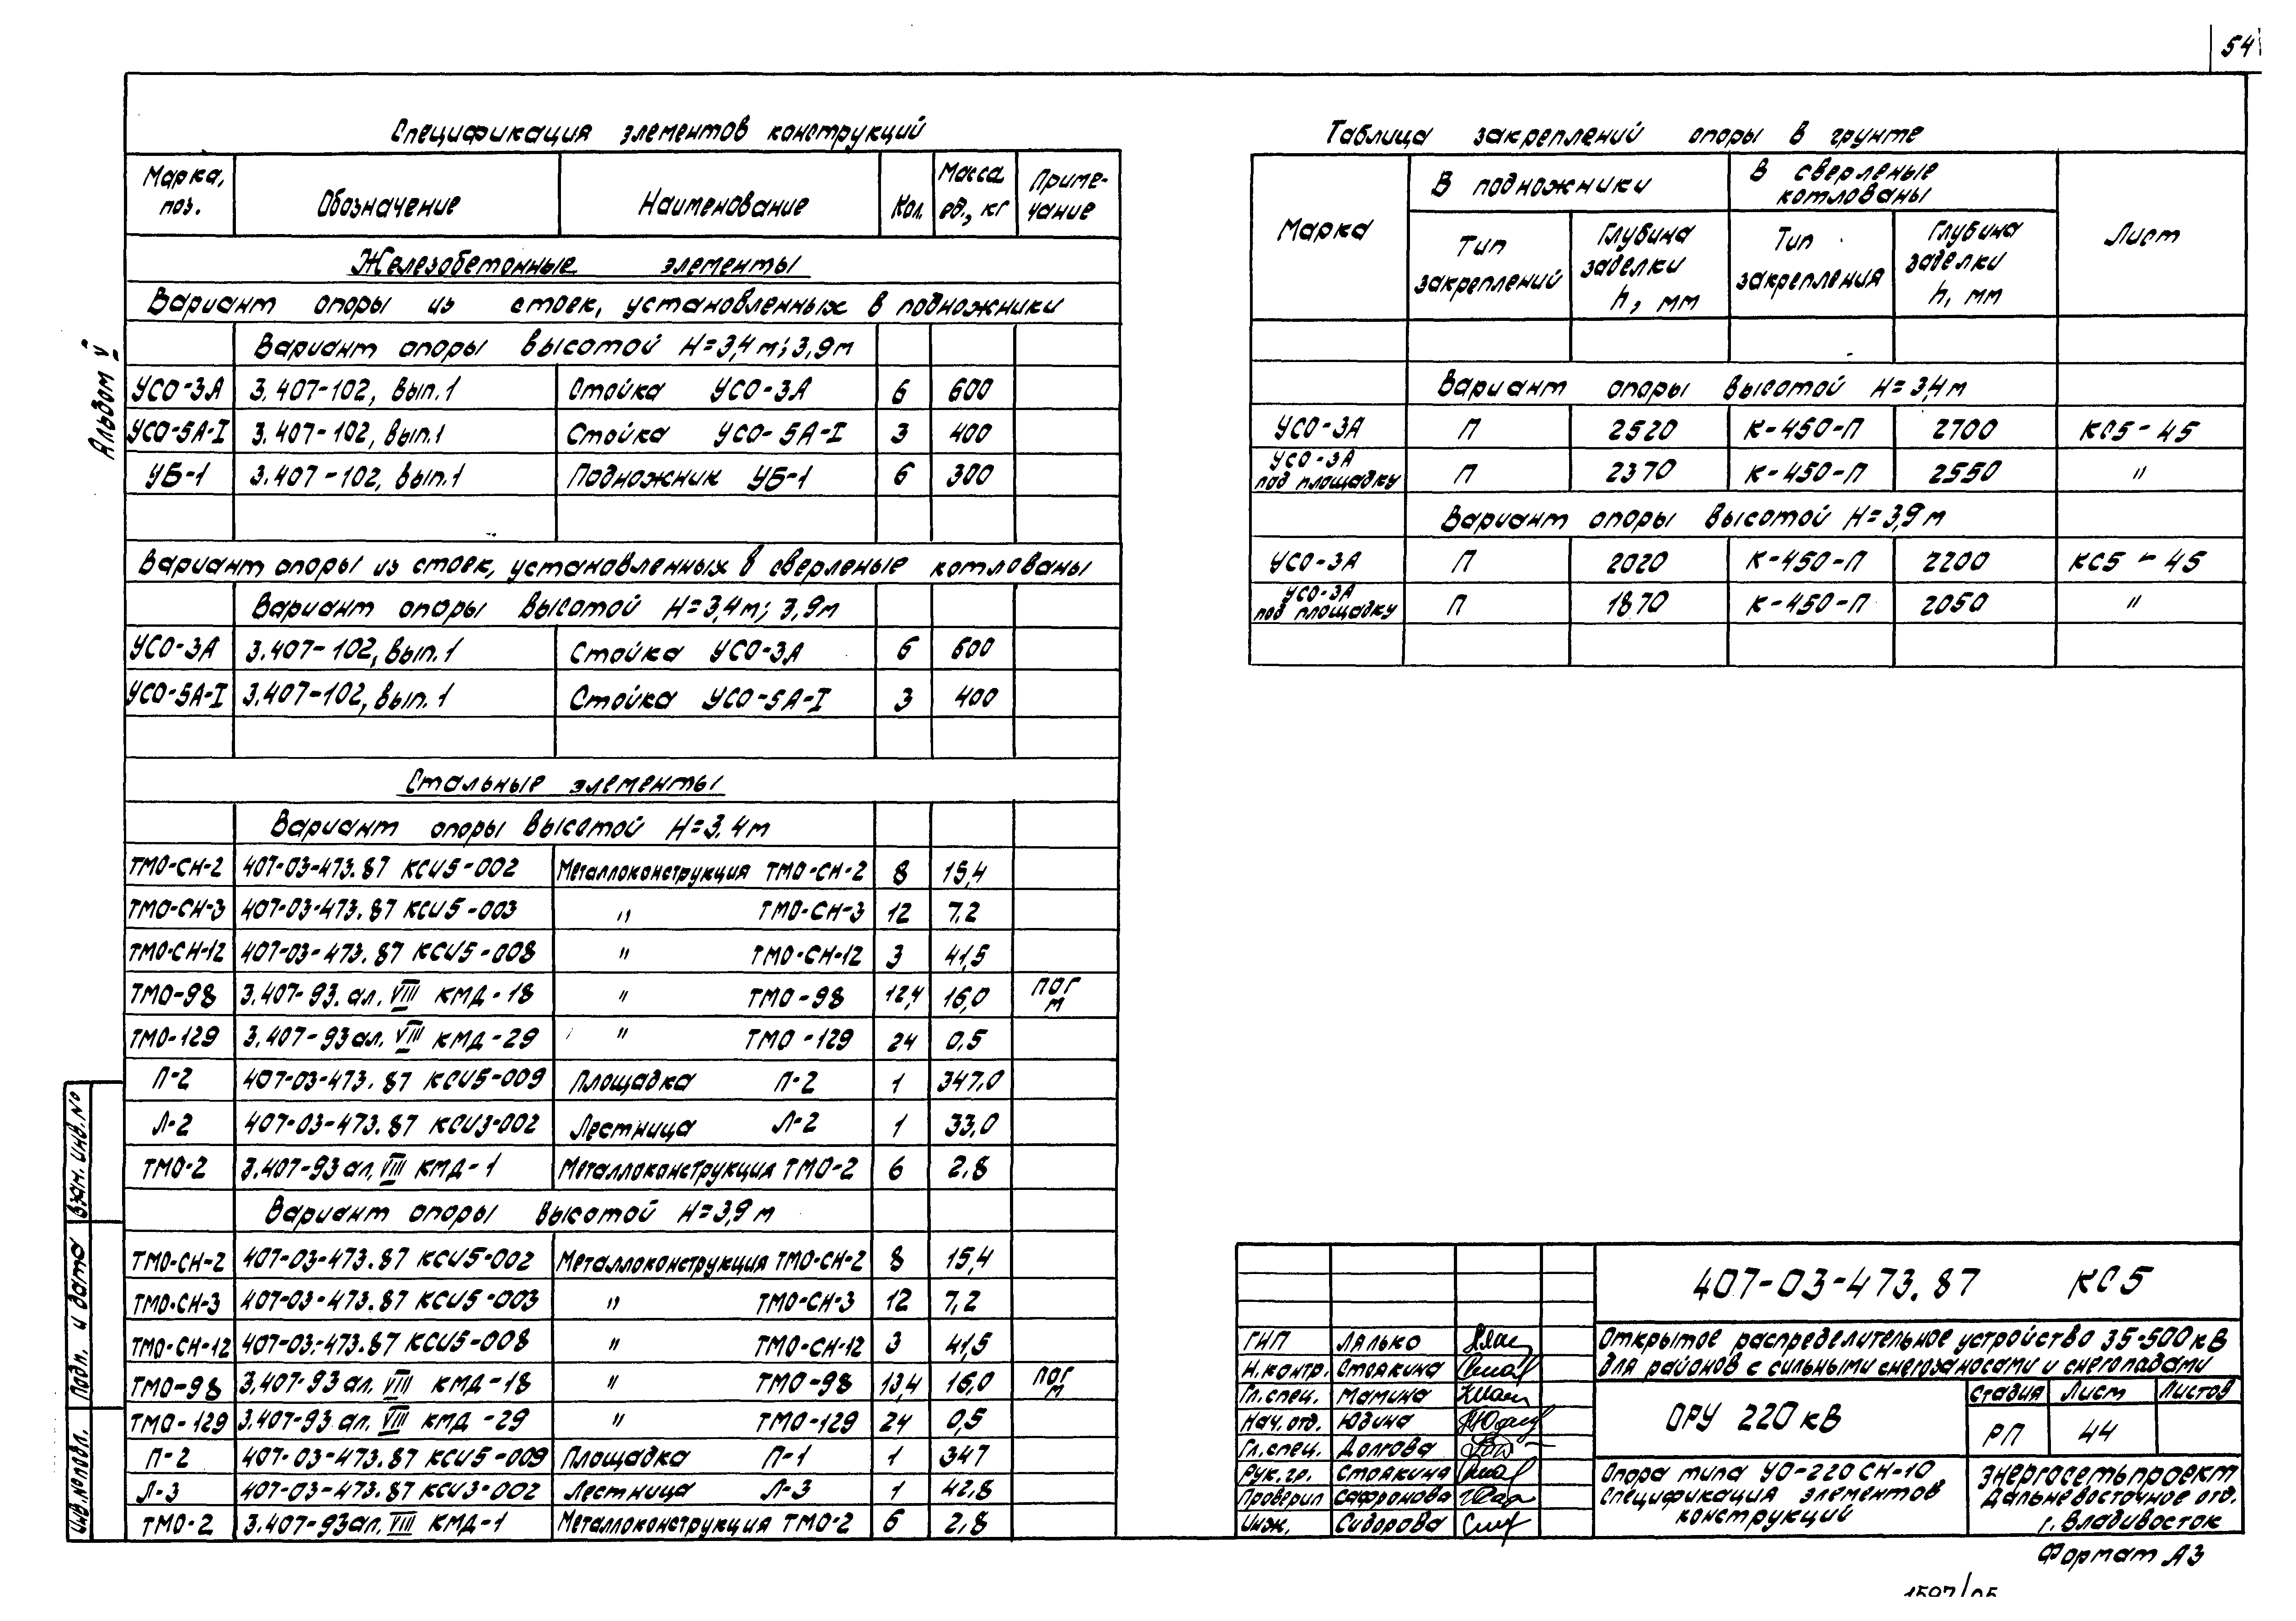 54
Спецификация элементов конструкций
Марка, поз. Обозначение Наименование Кол. Масса ед., кг Примечание
Железобетонные элементы
Вариант опоры из стоек, установленных в подножники
Вариант опоры высотой Н=3,4м; 3,9м
УСО-3А 3.407-102, вып.1 Стойка УСО-3А 6 600
УСО-5А-I 3.407-102, вып.1 Стойка УСО-5А-I 3 400
УБ-1 3.407-102, вып.1 Подножник УБ-1 6 300
Вариант опоры из стоек, установленных в сверленые котлованы
Вариант опоры высотой Н=3,4м; 3,9м
УСО-3А 3.407-102, вып.1 Стойка УСО-3А 6 600
УСО-5А-I 3.407-102, вып.1 Стойка УСО-5А-I 3 400
Стальные элементы
Вариант опоры высотой Н=3.4м
ТМО-СН-2 407-03-473.87 КСИ5-002 Металлоконструкция ТМО-СН-2 8 15,4
ТМО-СН-3 407-03-473.87 КСИ5-003 " ТМО-СН-3 12 7,2
ТМО-СН-12 407-03-473.87 КСИ5-008 " ТМО-СН-12 3 41,5
ТМО-98 3.407-93. ал. VIII КМД-18 " ТМО-98 12,4 16,0 пог м
ТМО-129 3.407-93 ал. VIII КМД-29 " ТМО-129 24 0,5
П-2 407-03-473.87 КСИ5-009 Площадка П-2 1 347,0
Л-2 407-03-473.87 КСИ3-002 Лестница Л-2 1 33,0
ТМО-2 3.407-93 ал. VIII КМД-1 Металлоконструкция ТМО-2 6 2,8
Вариант опоры высотой Н=3,9м
ТМО-СН-2 407-03-473.87 КСИ5-002 Металлоконструкция ТМО-СН-2 8 15,4
ТМО-СН-3 407-03-473.87 КСИ5-003 " ТМО-СН-3 12 7,2
ТМО-СН-12 407-03-473.87 КСИ5-008 " ТМО-СН-12 3 41,5
ТМО-98 3.407-93 ал. VIII КМД-18 " ТМО-98 13,4 16,0 пог м
ТМО-129 3.407-93 ал. VIII КМД-29 " ТМО-129 24 0,5
П-2 407-03-473.87 КСИ5-009 Площадка П-1 1 347
Л-3 407-03-473.87 КСИ3-002 Лестница Л-3 1 42,8
ТМО-2 3.407-93ал. VIII КМД-1 Металлоконструкция ТМО-2 6 2,8
Альбом V
Взам. инв. №
Подп. и дата
Инв. № подл.
Таблица закреплений опоры в грунте
Марка В подножники В сверленые котлованы Лист
Тип закреплений Глубина заделки h, мм Тип закрепления Глубина заделки h, мм
Вариант опоры высотой Н=3,4м
УСО-3А П 2520 К-450-П 2700 КС5-45
УСО-3А под площадку П 2370 К-450-П 2550 "
Вариант опоры высотой Н=3,9м
УСО-3А П 2020 К-450-П 2200 КС5-45
УСО-3А под площадку П 1870 К-450-П 2050 "
407-03-473.87 КС5
ГИП Лялько
Н.контр. Стоякина
Гл.спец. Мамина
Нач.отд. Юдина
Гл.спец. Долгова
Рук.гр. Стоякина
Проверил Сафронова
Инж. Сидорова
Открытое распределительное устройство 35-500кВ
для районов с сильными снегозаносами и снегопадами
ОРУ 220кВ
Стадия Лист Листов
РП 44
Опора типа УО-220СН-10
Спецификация элементов
конструкций
Энергосетьпроект
Дальневосточное отд.
г. Владивосток
Формат А3
1597/05